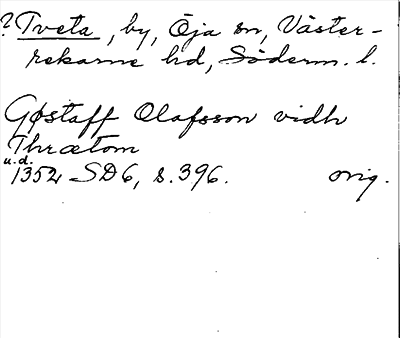 ? Tveta, by, Öja sn, Väster-
rekarne hd, Söderm. l.
Gøstaff Olafsson vidh
Thrætom
u.d.
1352 SD6, s. 396. orig.